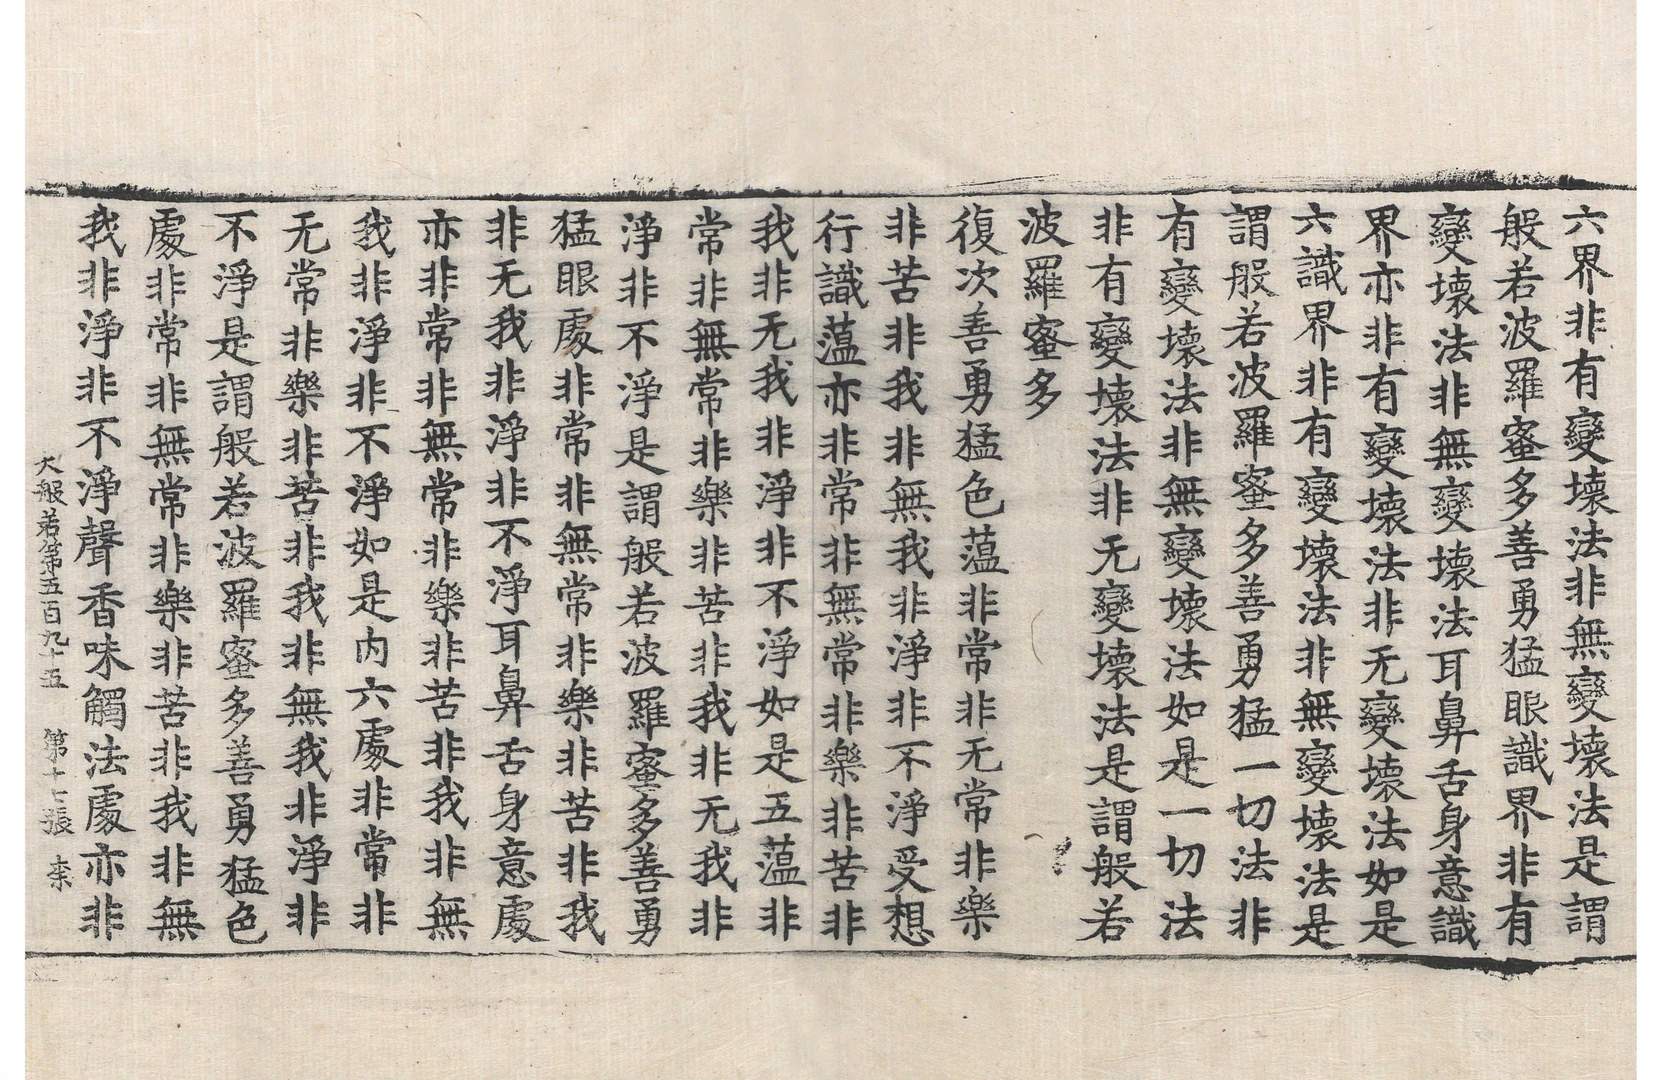 六界非有變壞法非無變壞法是謂
般若波羅蜜多善勇猛眼識界非有
變壞法非無變壞法耳鼻舌身意識
界亦非有變壞法非无變壞法如是
六識界非有變壞法非無變壞法是
謂般若波羅蜜多善勇猛一切法非
有變壞法非無變壞法如是一切法
非有變壞法非无變壞法是謂般若
波羅蜜多
復次善勇猛色薀非常非无常非樂
非苦非我非無我非淨非不淨受想
行識薀亦非常非無常非樂非苦非
我非无我非淨非不淨如是五薀非
常非無常非樂非苦非我非无我非
淨非不淨是謂般若波羅蜜多善勇
猛眼處非常非無常非樂非苦非我
非无我非淨非不淨耳鼻舌身意處
亦非常非無常非樂非苦非我非無
我非淨非不淨如是内六處非常非
无常非樂非苦非我非無我非淨非
不淨是謂般若波羅蜜多善勇猛色
處非常非無常非樂非苦非我非無
我非淨非不淨聲香味觸法處亦非
大般若第五百九十五 第十七張 柰